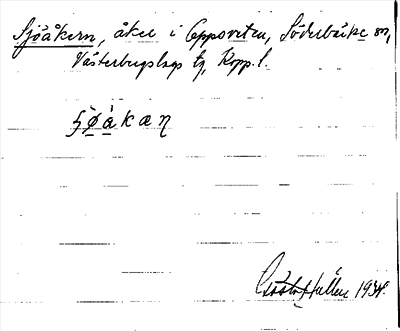 Sjöåkern, åker i Uppsveten, Söderbärke sn,
Västerbergslags tg, Kopp. l.
ʂø̀åkæn
Gösta Hallén 1934.